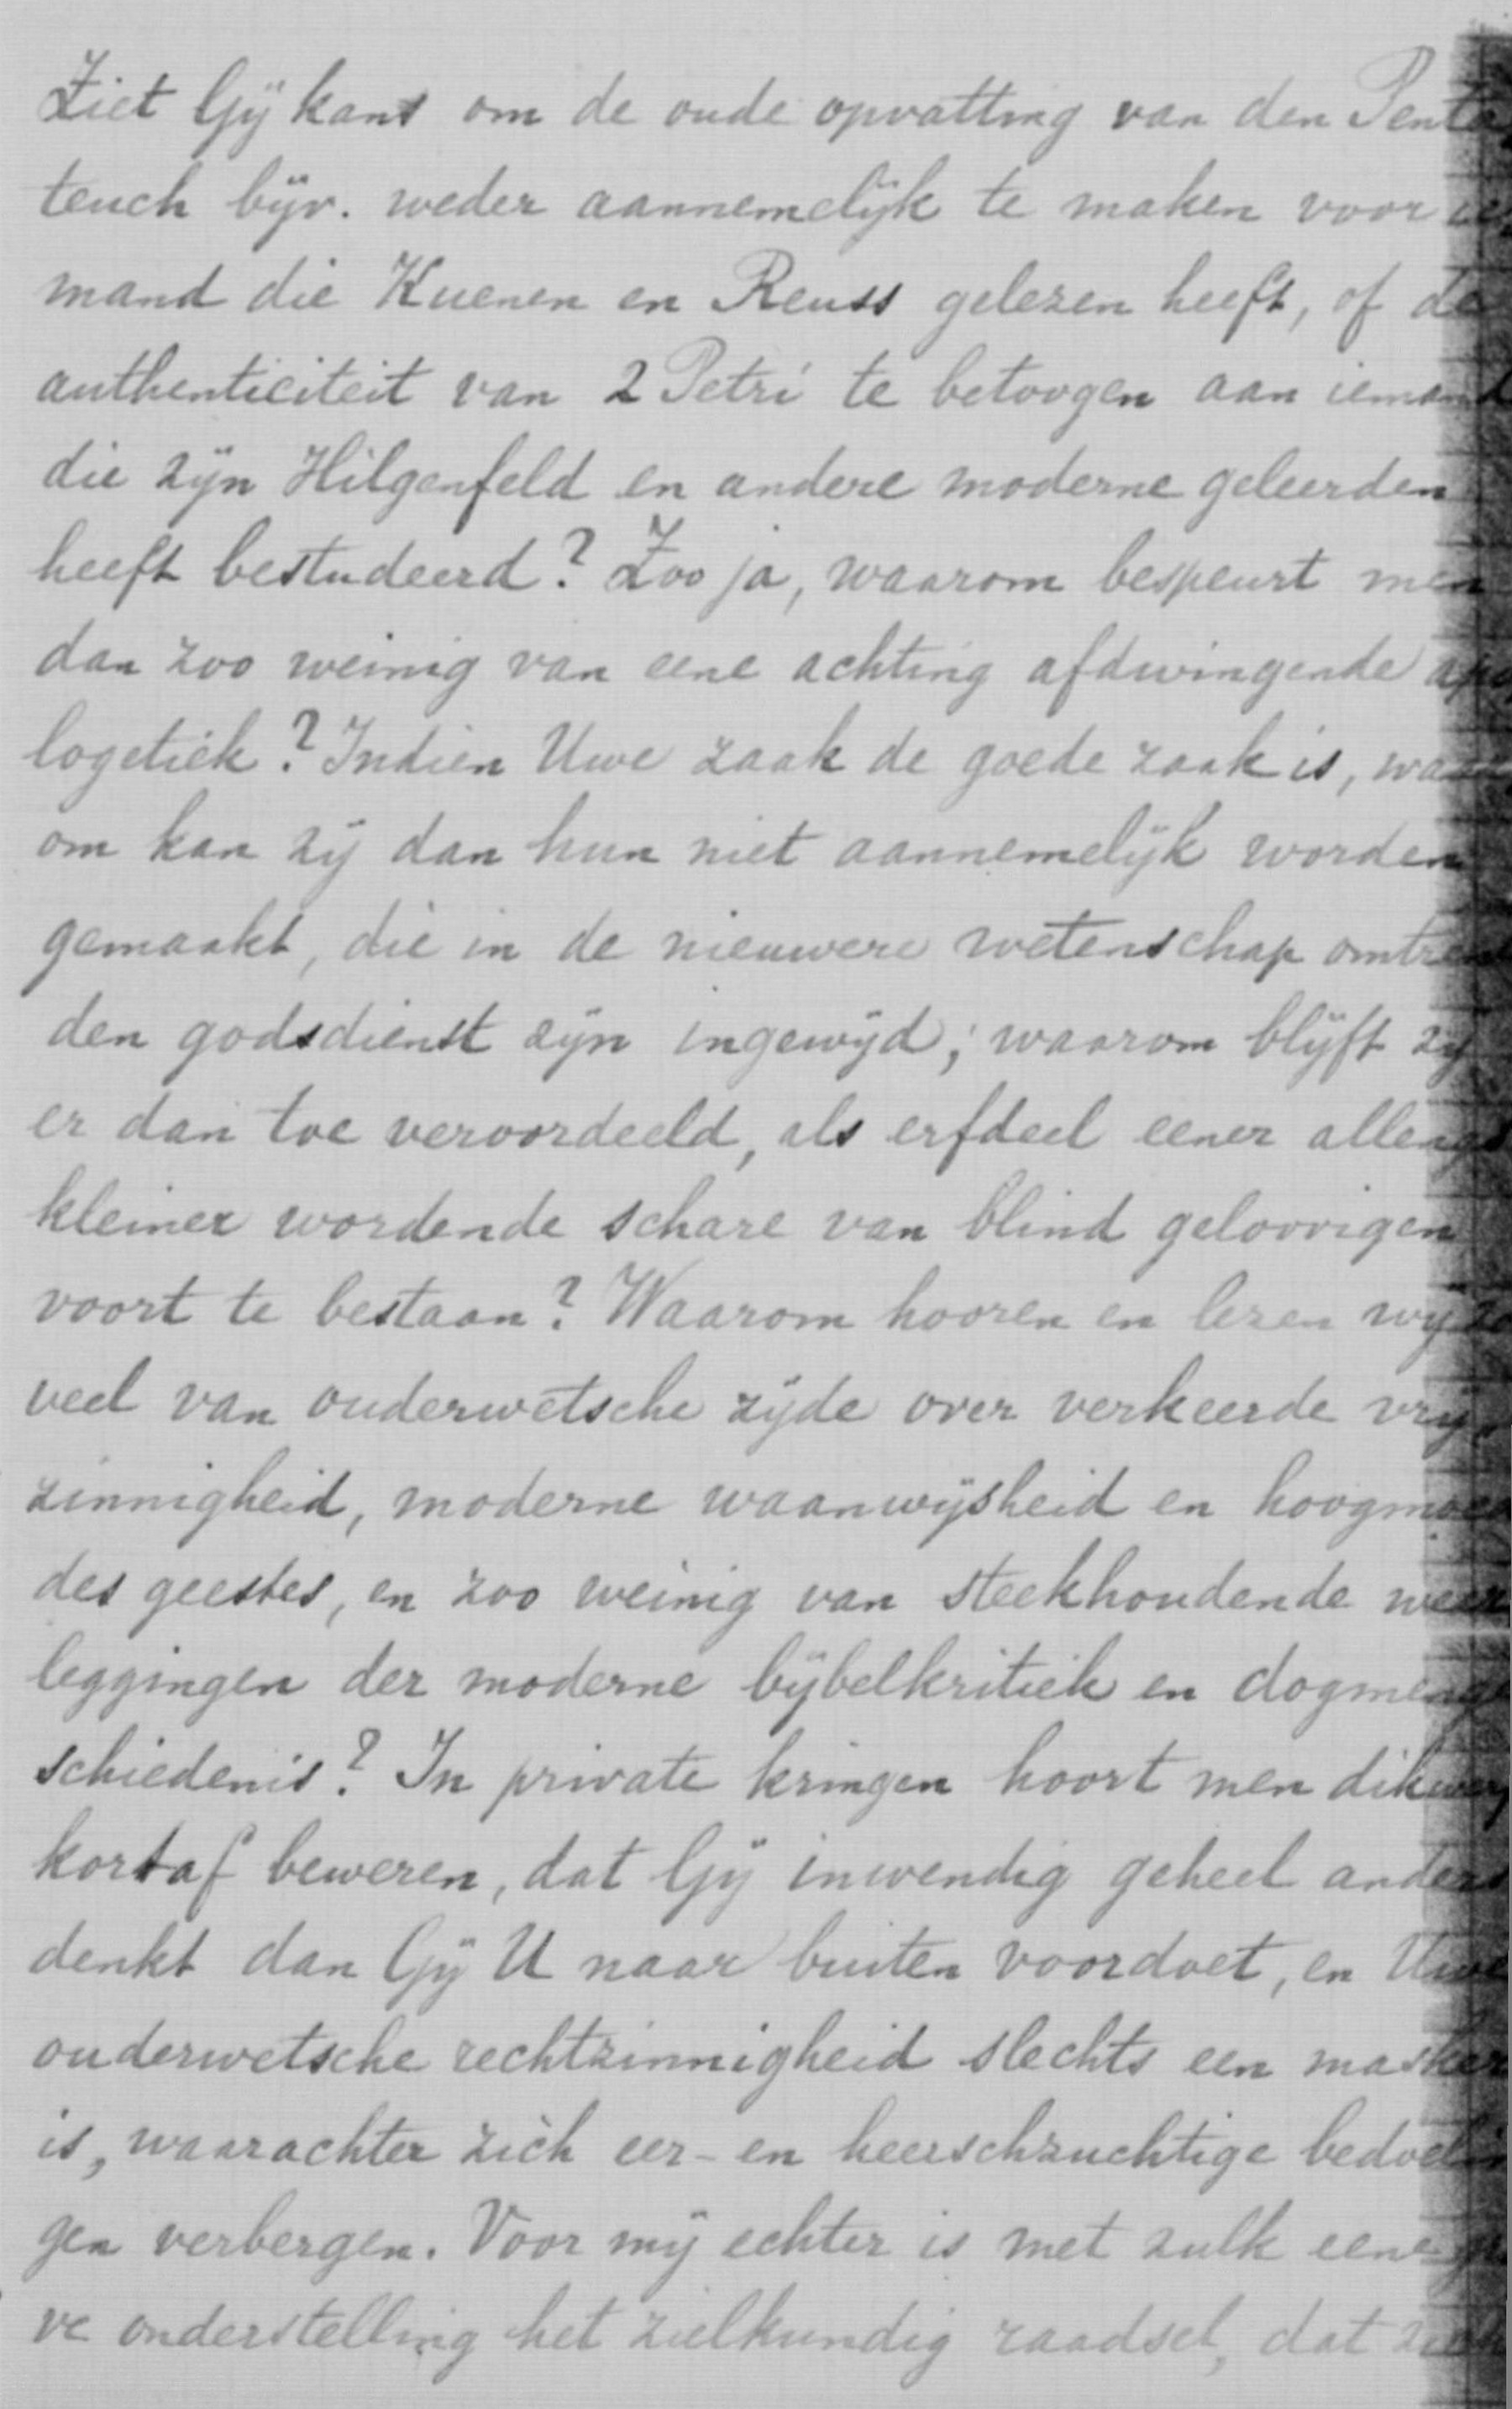 Ziet Gij kans om de oude opvatting van den Penta
teuch bijv. weder aannemelijk te maken voor ie
mand die Kuenen en Reuss gelezen heeft, of de
authenticiteit van 2 Petri te betoogen aan iemand
die zijn Hilgenfeld en andere moderne geleerden
heeft bestudeerd? Zoo ja, waarom bespeurt men
dan zoo weinig van eene achting afdwingende apo
logetiek? Indien Uwe zaak de goede zaak is, waar
om kan zij dan hun niet aannemelijk worden
gemaakt, die in de nieuwere wetenschap omtrent
den godsdienst zijn ingewijd; waarom blijft zij
er dan toe veroordeeld, als erfdeel eener allengs
kleiner wordende schare van blind geloovigen
voort te bestaan? Waarom hooren en lezen wij zo
veel van ouderwetsche zijde over verkeerde vrij
zinnigheid, moderne waanwijsheid en hoogmoed
des geestes, en zoo weinig van steekhoudende weer
leggingen der moderne bijbelkritiek en dogmenge
schiedenis? In private kringen hoort men dikwerf
kortaf beweren, dat Gij inwendig geheel anders
denkt dan Gij U naar buiten voordoet, en Uwe
ouderwetsche rechtzinnigheid slechts een masker
is, waarachter zich eer- en heerschzuchtige bedoelin
gen verbergen. Voor mij echter is met zulk eene
ve onderstelling het zielkundig raadsel, dat